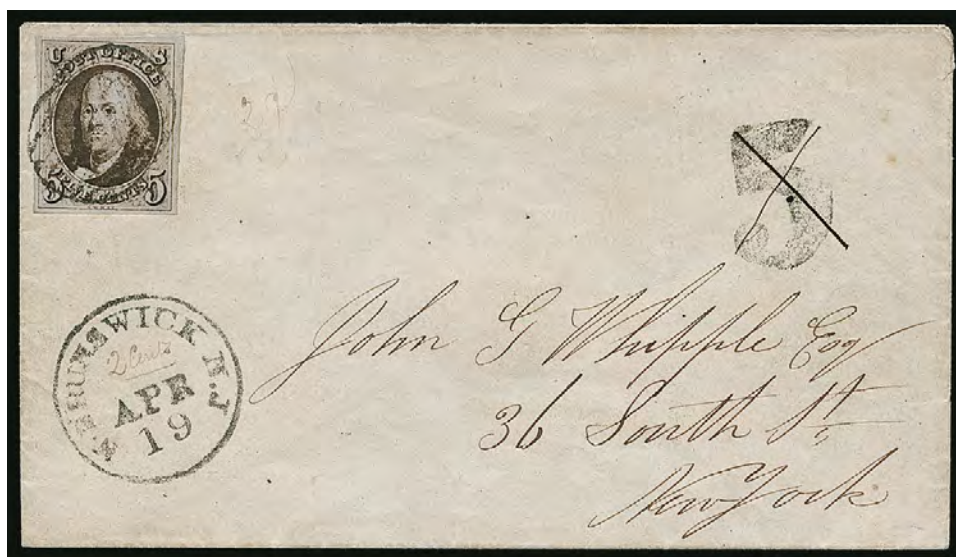 U S
POST OFFICE
FIVE CENTS
5 5
5
N. BRUNSWICK N.J
2 Cents
APR
19
John G Whipple Esq
36 South St.
New York